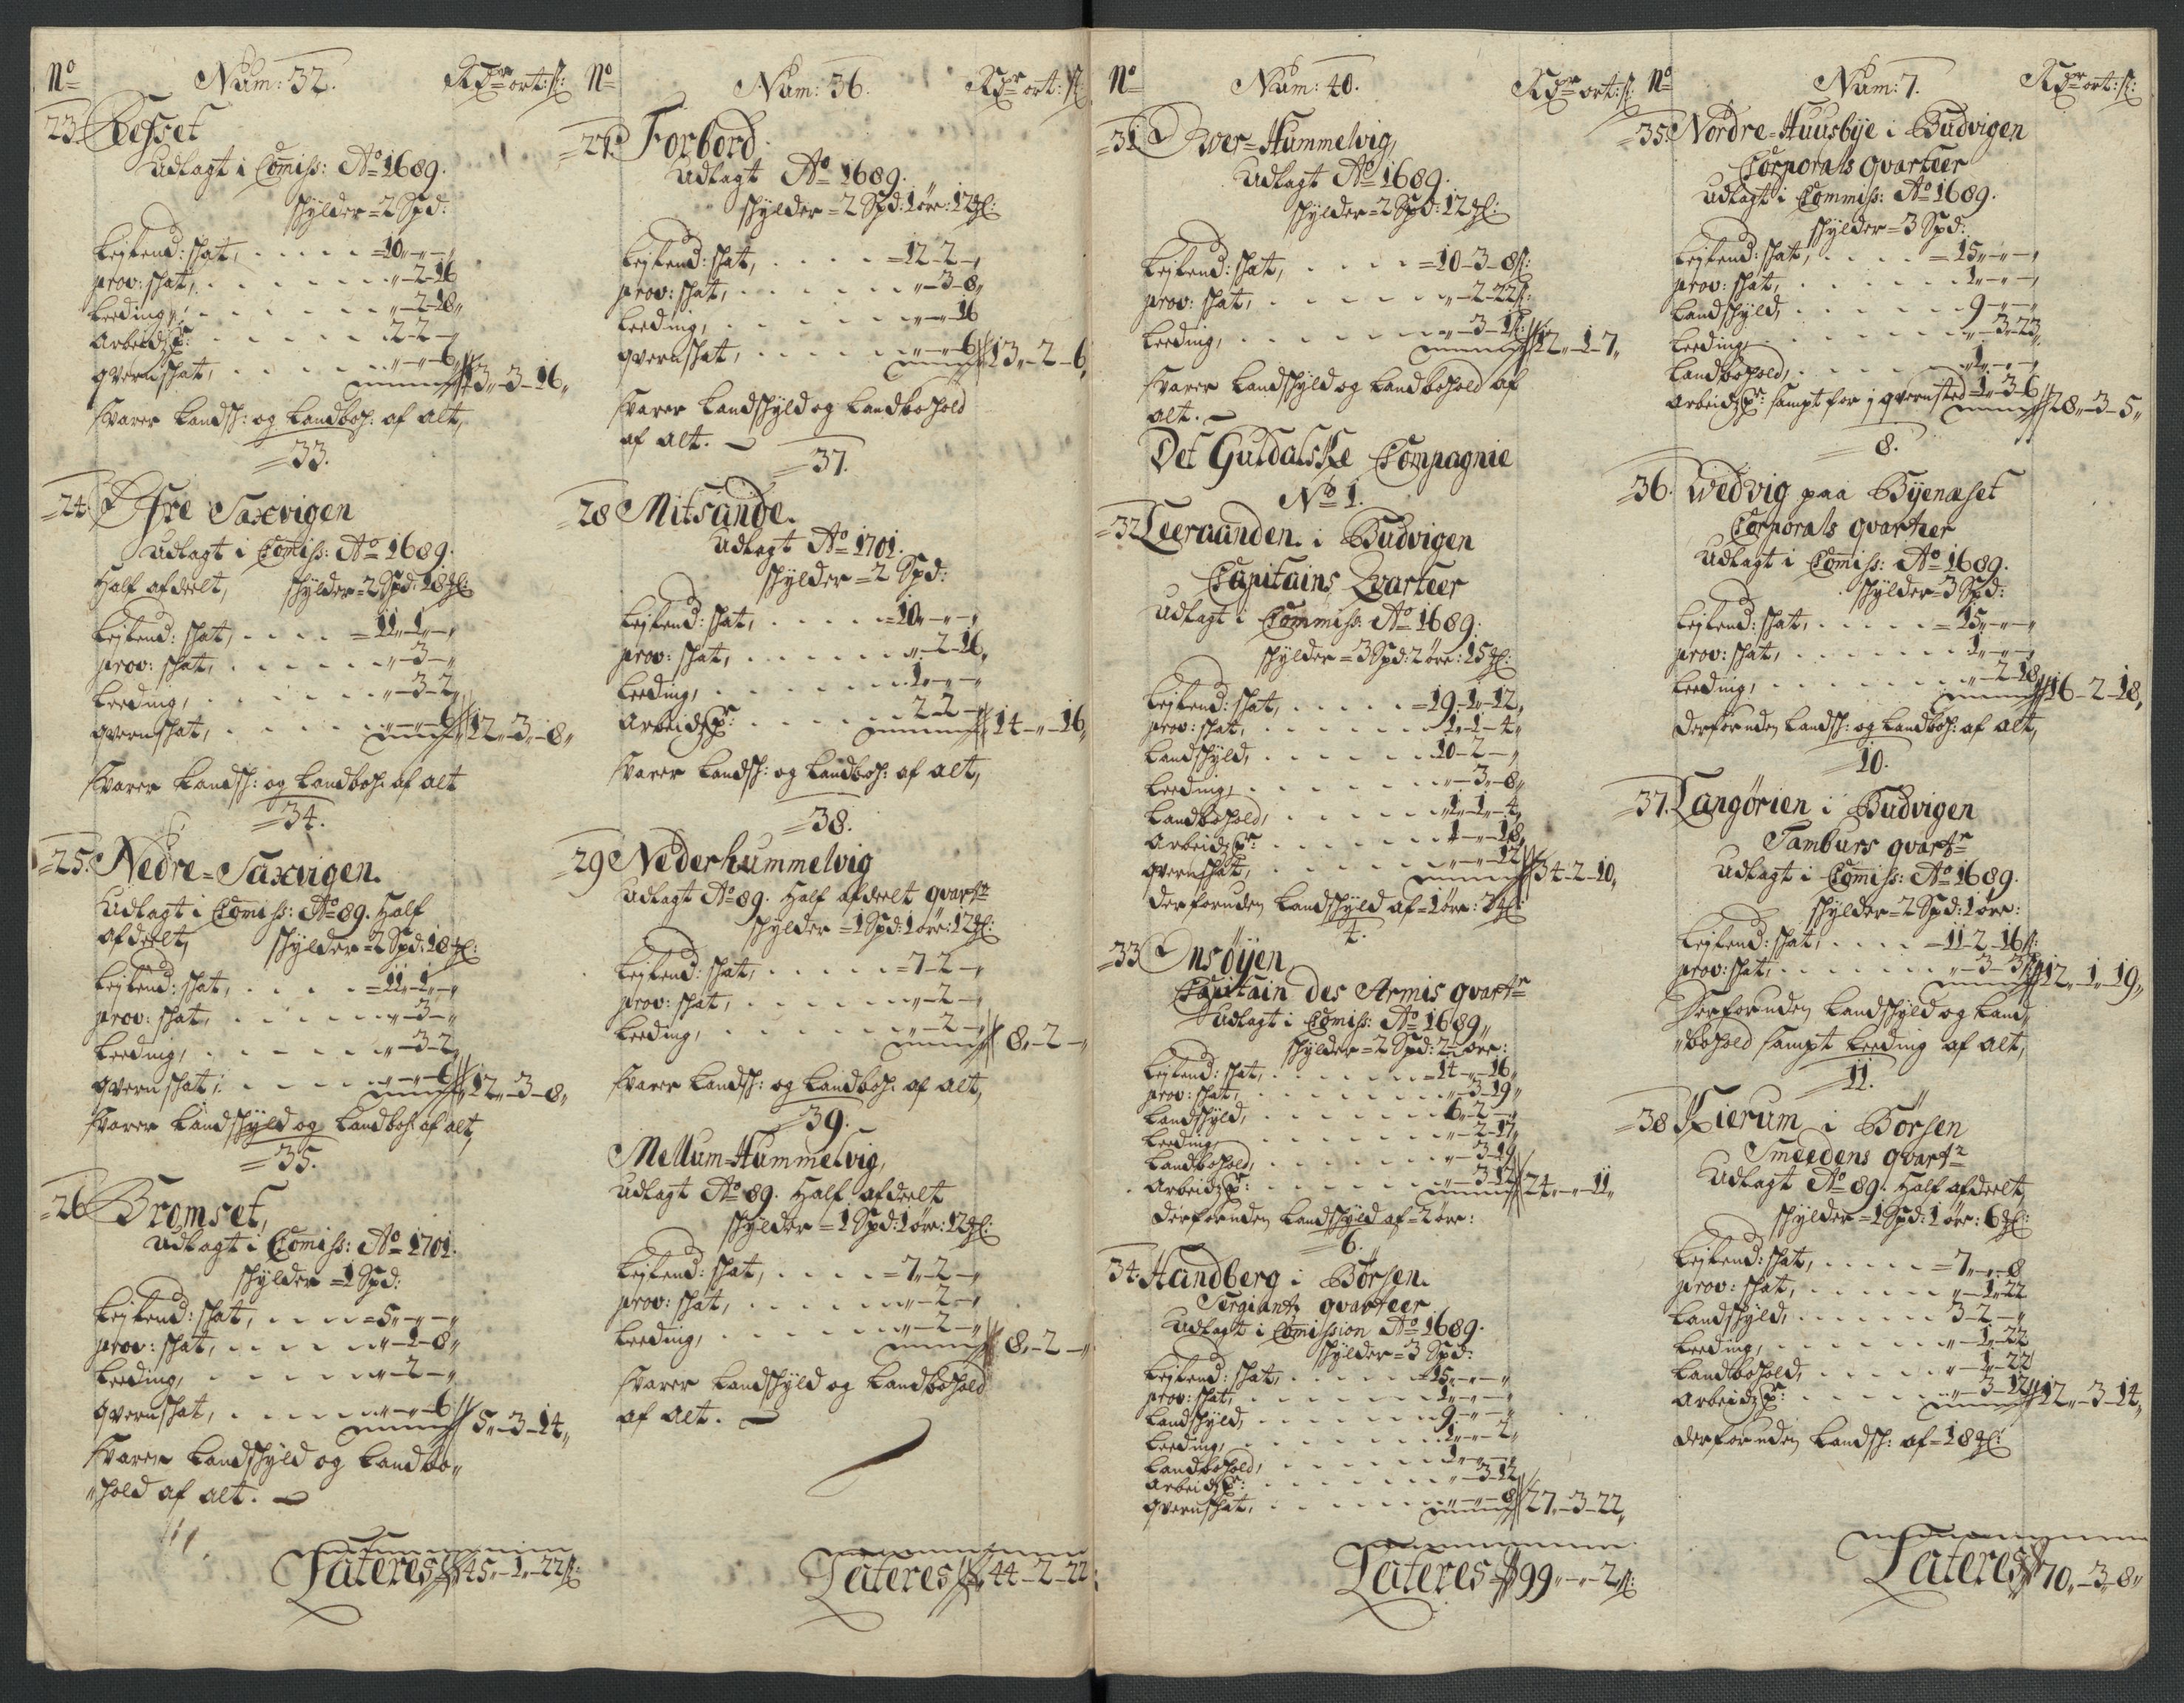 No Num: 32. Rdr ort: s:
23. Resset
Udlagt i Comiss: Ao 1689.
schylder = 2 Spd:
Leilend: schat, . . . . = 10 „ - „ - „
prov: schat, . . . . . „ - 2 - 16
Leeding, . . . . . „ - 2 - 18 „
Arbeidzp: . . . . . 2 - 2 - „
qvernschat, . . . . „ - „ - 6 // 13 „ - 3 - 16 „
svarer Landsch: og Landboh: af alt,
= 33.
= 24. Øfre Saxvigen
Udlagt i Comiss: Ao 1689.
Half afdeelt, schylder = 2 Spd: 18 ȝl:
Leilend: schat, . . . . = 11 „ - 1 „ - „
prov: schat, . . . . . „ - 3 - „
Leeding, . . . . . „ - 3 - 2 „
qvernschat, . . . . „ - „ - 6 // 12 „ - 3 „ - 8 „
svarer Landsch: og Landboh: af alt
= 34.
= 25. Nedre = Saxvigen.
Udlagt i Comiss: Ao 89. Half
afdeelt, schylder = 2 Spd: 18 ȝl:
Leilend: schat, . . . . = 11 „ - 1 „ - „
prov: schat, . . . . . „ - 3 - „
Leeding, . . . . . „ - 3 - 2
qvernschat, . . . . „ - „ - 6 // 12 „ - 3 - 8 „
svarer Landschyld og Landboh: af alt,
= 35.
= 26 Bromset,
Udlagt i Comiss: Ao 1701.
schylder = 1 Spd:
Leilend: schat, . . . . = 5 „ - „ - „
prov: schat, . . . . . „ - 1 - 8 „
Leeding, . . . . . „ - 2 - „
qvernschat, . . . . „ - „ - 6 // 5 „ - 3 - 14 „
svarer Landschyld og Landbo„
„hold af alt.
Lateres 45 „ - 1 „ - 22 s:
No Num: 36. Rdr ort: s:
= 27. Forbord.
Udlagt Ao 1689.
schylder = 2 Spd: 1 øre: 12 ȝl:
Leilend: schat, . . . . = 12 - 2 - „
prov: schat, . . . . . „ - 3 - 8 „
Leeding, . . . . . „ - „ - 16
qvernschat, . . . . „ - „ - 6 // 13 „ - 2 - 6
svarer Landschyld og Landbohold
af alt.
= 37.
= 28 Mitsande.
Udlagt Ao 1701.
schylder = 2 Spd:
Leilend: schat, . . . . = 10 „ - „ - „
prov: schat, . . . . . „ - 2 - 16 „
Leeding, . . . . . 1 „ - „ - „
Arbeidzp: . . . . . 2 - 2 - „ // 14 - „ - 16 „
svarer Landsch: og Landboh: af alt,
= 38.
= 29 Nederhummelvig
Udlagt Ao 89. Half afdeelt qvartr
schylder = 1 Spd: 1 øre: 12 ȝl:
Leilend: schat, . . . . = 7 - 2 - „
prov: schat, . . . . . „ - 2 - „
Leeding, . . . . . „ - 2 - „ // 8 „ - 2 - „
svarer Landsch: og Landboh: af alt,
= 39.
Mellum = Hummelvig,
Udlagt Ao 89. Half afdeelt
schylder = 1 Spd: 1 øre: 12 ȝl:
Leilend: schat, . . . . = 7 „ - 2 - „
prov: schat, . . . . . „ - 2 - „
Leeding, . . . . . „ - 2 - „ // 8 „ - 2 - „
svarer Landschyld og Landbohold
af alt.
Lateres 44 - 2 - 22
No Num: 40. Rdr ort: s:
= 31 Over = Hummelvig,
Udlagt Ao 1689.
schylder = 2 Spd: 12 ȝl:
Leilend: schat, . . . . = 10 - 3 - 8 s:
prov: schat, . . . . . „ - 2 - 22 s:
Leeding, . . . . . „ - 3 - 1 s: // 12 „ - 1 - 7 „
svarer Landschyld og Landbohold af
alt.
Det Guldalske Compagnie
No 1.
= 32 Leeraanden i Budvigen
Capitains Qvarteer
Udlagt i Commiss: Ao 1689.
schylder = 3 Spd: 2 øre: 15 ȝl:
Leilend: schat, . . . . = 19 - 1 „ - 12 „
prov: schat, . . . . . 1 „ - 1 - 4 „
Landschyld, . . . . . 10 - 2 - „
Leeding, . . . . . „ - 3 „ - 8 „
Landbohold, . . . . . 1 „ - 1 „ - 4 „
Arbeidzp: . . . . . 1 - „ - 18 „
qvernschat, . . . . „ - „ - 12 // 34 - 2 - 10 „
derforuden Landschyld af = 1 øre: 3 ȝl:
4.
= 33 Onsøyen
Capitain des Armis qvartr
Udlagt i Comiss: Ao 1689 „
schylder = 2 Spd: 2½ øre:
Leilend: schat, . . . . = 14 - „ - 16 „
prov: schat, . . . . . „ - 3 - 19 „
Landschyld, . . . . . 6 „ - 2 - „
Leeding, . . . . . „ - 2 - 17 „
Landbohold, . . . . . „ - 3 - 19
Arbeidzp: . . . . . „ - 3 - 12 // 24 „ - „ - 11 „
derforuden Landschyld af = 2 øre:
= 6.
34. Handberg i Børsen.
Sergiantz qvarteer
Udlagt i Comission Ao 1689.
schylder = 3 Spd:
Leilend: schat, . . . . = 15 „ - „ - „
prov: schat, . . . . . 1 „ - „ - „
Landschyld, . . . . . 9 - „ - „
Leeding, . . . . . 1 „ - „ - 2 „
Landbohold, . . . . . 1 „ - „ - „
Arbeidzp: . . . . . „ - 3 - 12
qvernschat, . . . . „ - „ - 8 // 27 „ - 3 - 22 „
Lateres 99 „ - „ - 2 s:
No Num: 7. Rdr ort: s:
= 35. Nordre = Huusbye i Budvigen
Corporals qvarteer
Udlagt i Commiss: Ao 1689.
schylder = 3 Spd:
Leilend: schat, . . . . = 15 „ - „ - „
prov: schat, . . . . . 1 „ - „ - „
Landschyld, . . . . . 9 - „ - „
Leeding, . . . . . „ - 3 - 23 „
Landbohold, . . . . . 1 „ - „ - „
Arbeidzp: sampt for j qvernsted 1 „ - 3 - 6 // 28 „ - 3 - 5 „
8.
= 36. Wedvig paa Byenæset
Corporals qvarteer
Udlagt i Comiss: Ao 1689.
schylder = 3 Spd:
Leilend: schat, . . . . = 15 „ - „ - „
prov: schat, . . . . . 1 „ - „ - „
Leeding, . . . . . „ - 2 - 18 // 16 - 2 - 18 „
derforuden Landsch: og Landboh: af alt,
10.
= 37. Langørien i Budvigen
Tamburs qvartr
Udlagt i Comiss: Ao 1689.
schylder = 2 Spd: 1 øre:
Leilend: schat, . . . . = 11 - 2 - 16 s:
prov: schat, . . . . . „ - 3 - 3 s: // 12 „ - 1 „ - 19 „
Derforuden Landschyld og Land„
„bohold sampt Leeding af alt,
11.
= 38 Kierum i Børsen
Smeedens qvartr
Udlagt Ao 89. Half afdeelt,
schylder = 1 Spd: 1 øre: 6 ȝl:
Leilend: schat, . . . . = 7 „ - „ - 8
prov: schat, . . . . . „ - 1 - 22
Landschyld, . . . . . 3 - 2 - „
Leeding, . . . . . „ - 1 „ - 22
Landbohold, . . . . . „ - 1 - 22
Arbeidzp: . . . . . „ - 3 - 12 // 12 „ - 3 - 14 „
derforuden Landsch: af = 18 ȝl:
Lateres 70 „ - 3 - 8 „